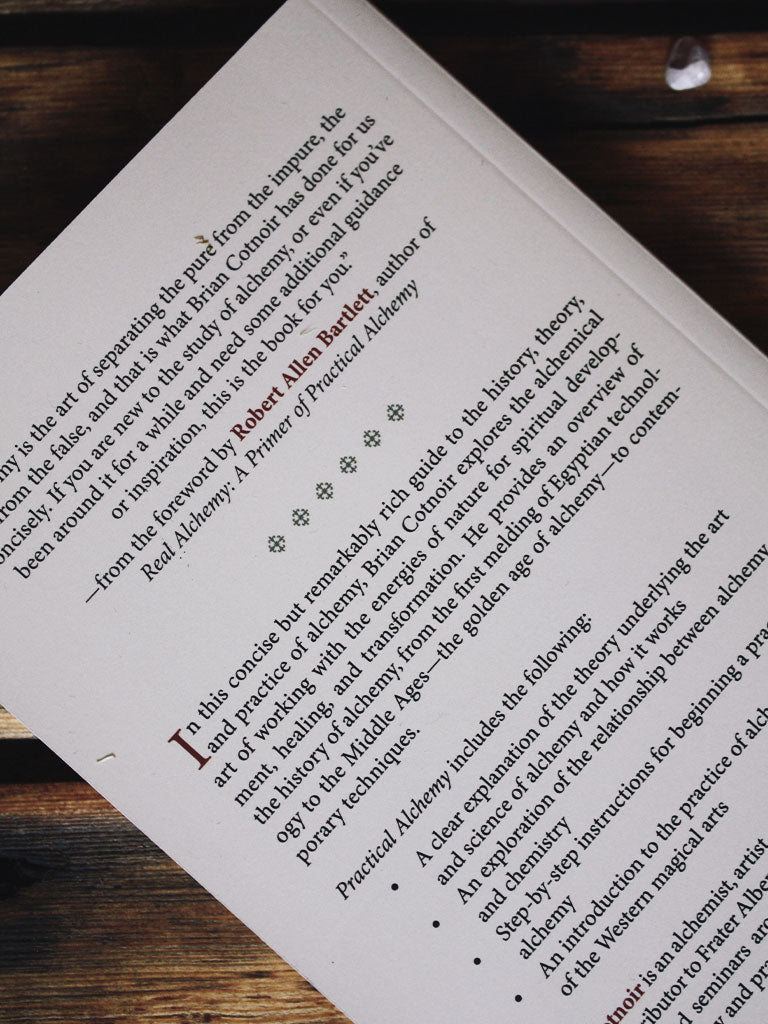 is the art of separating the pure from the impure, the
from the false, and that is what Brian Cotnoir has done for us
If you are new to the study of alchemy, or even if you've
been around it for a while and need some additional guidance
or inspiration, this is the book for you."
—from the foreword by Robert Allen Bartlett, author of
Real Alchemy: A Primer of Practical Alchemy
In this concise but remarkably rich guide to the history, theory,
and practice of alchemy, Brian Cotnoir explores the alchemical
art of working with the energies of nature for spiritual develop-
ment, healing, and transformation. He provides an overview of
the history of alchemy, from the first melding of Egyptian technol-
ogy to the Middle Ages—the golden age of alchemy—to contem-
porary techniques.
Practical Alchemy includes the following:
• A clear explanation of the theory underlying the art
and science of alchemy and how it works
• An exploration of the relationship between alchemy
and chemistry
• Step-by-step instructions for beginning a
alchemy
• An introduction to the practice of
of the Western magical arts
is an alchemist, artist
to Frater
seminars
and